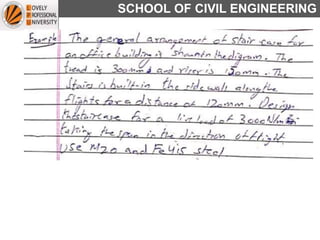 LOVELY
PROFESSIONAL
UNIVERSITY
SCHOOL OF CIVIL ENGINEERING
Example The general arrangement of stair case for
an office building is shown in the diagram. The
tread is 300mm and riser is 150mm. The
stairs is built-in the side walls along the
flights for a distance of 120mm. Design
the staircase for a live load of 3000N/m²
taking the span in the direction of flight
Use M20 and Fe415 steel